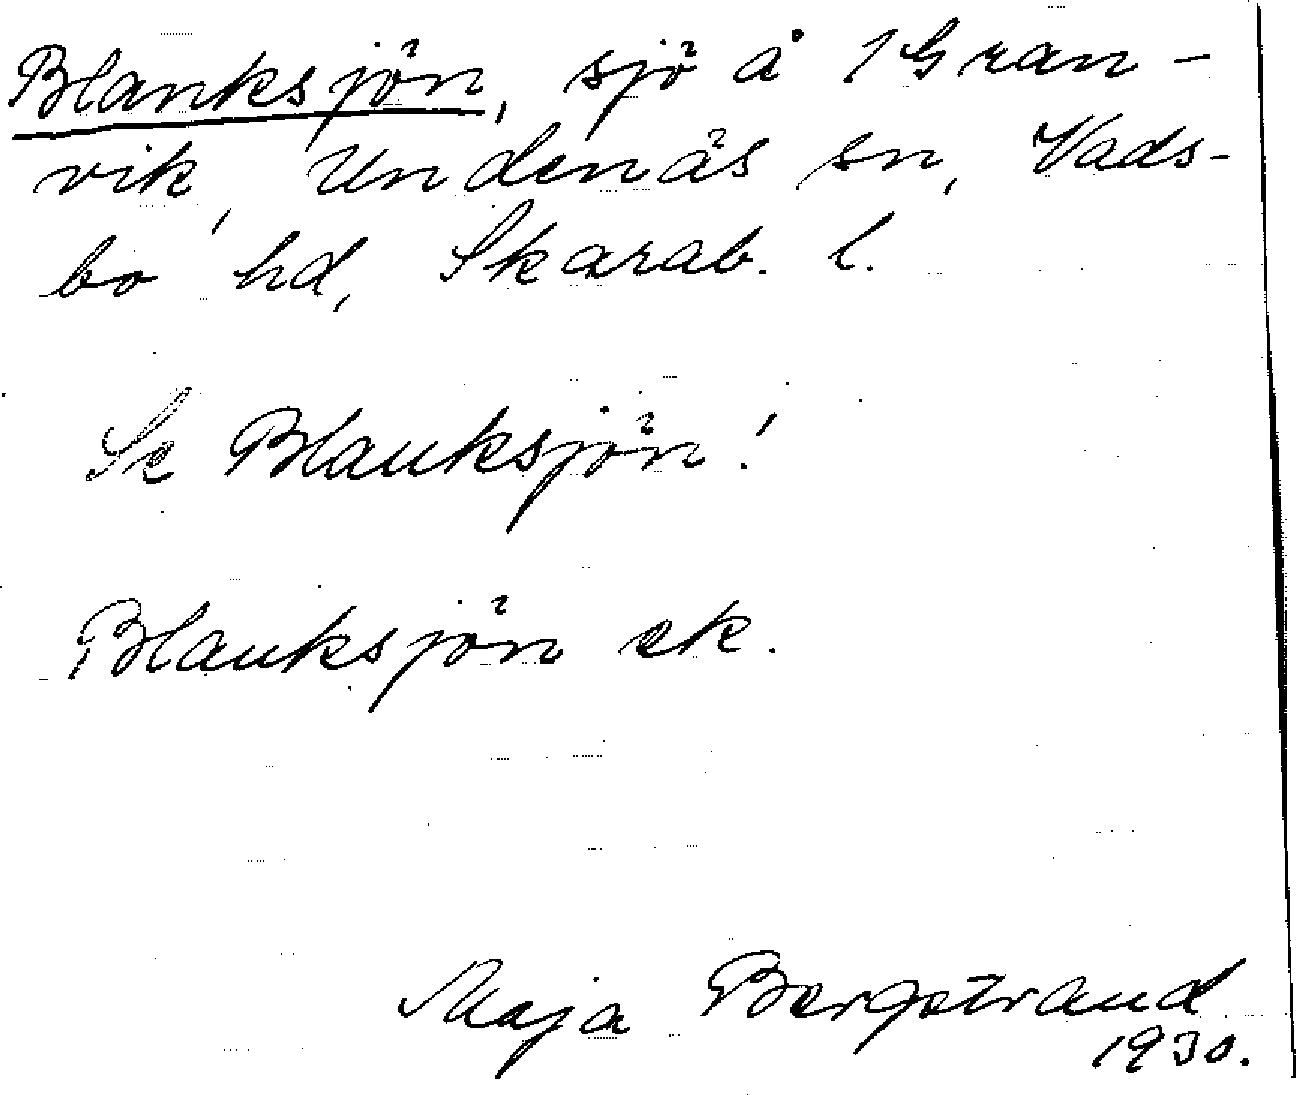 Blanksjön, sjö å 1 Gran-
vik, Undenäs sn, Vads-
bo hd, Skarab. l.
Se Blanksjön!
Blanksjön ek.
Maja Bergstrand
1930.